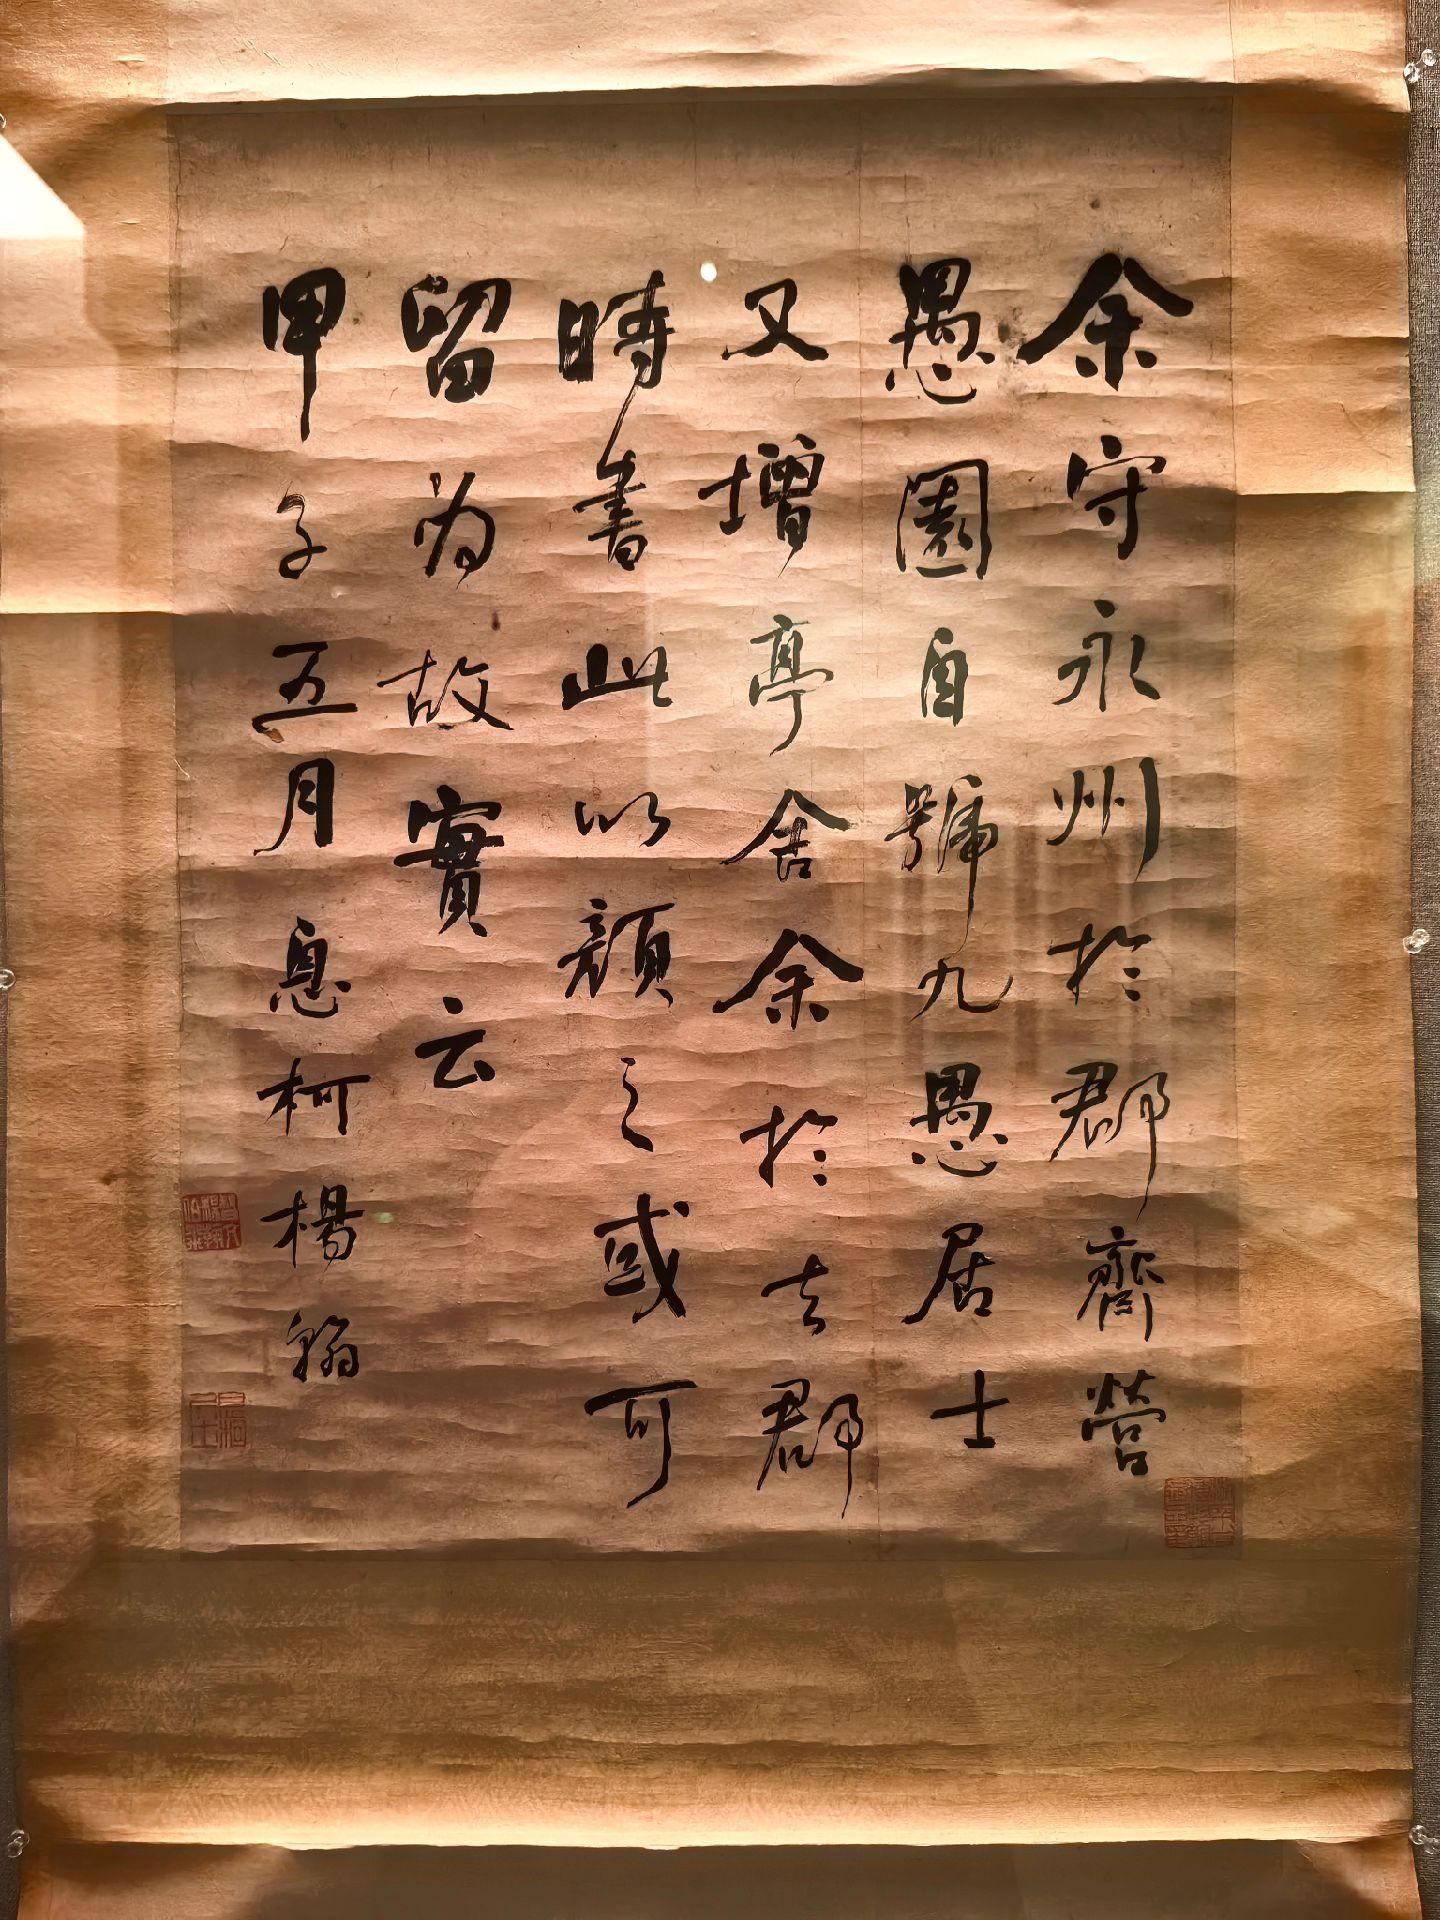 余守永州於郡齋營
愚園自號九愚居士
又增亭舍余於去郡
時書此以顏之或可
留為故實云
甲子五月息柯楊翰